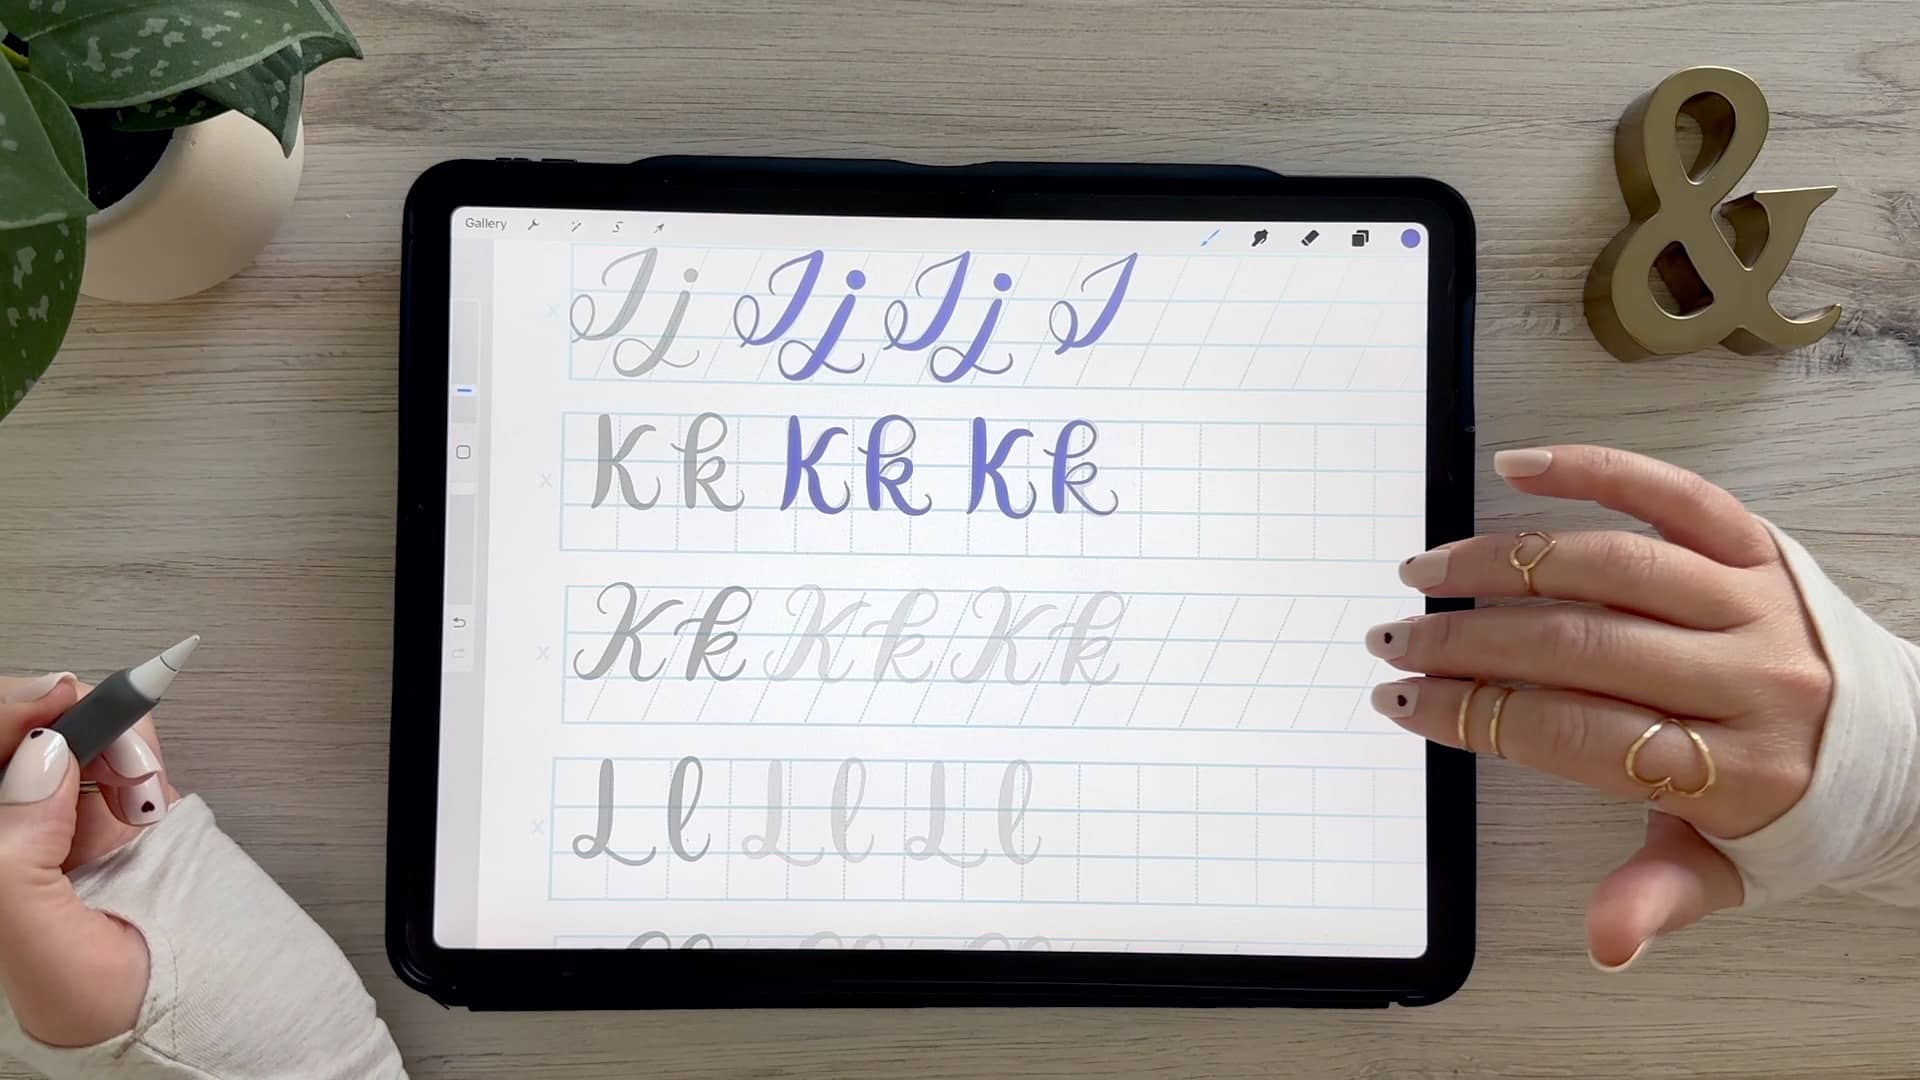 Gallery
Jj Jj Jj J
x
Kk Kk Kk
x
Kk Kk Kk
x
Ll Ll Ll
x
&